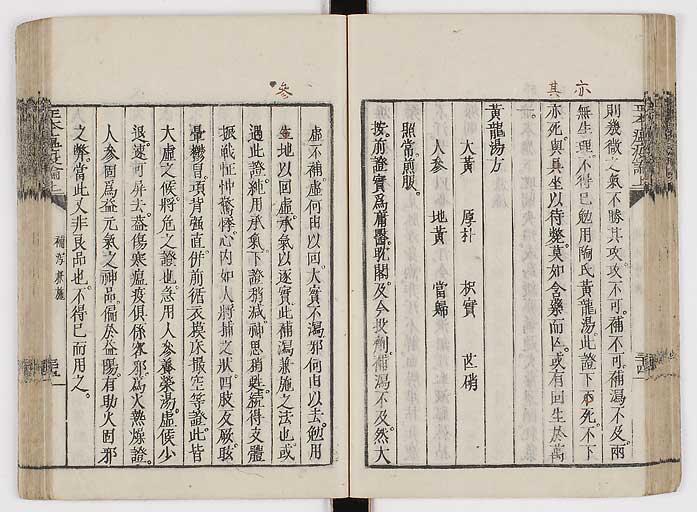 亦
其
則幾微之氣不勝其攻攻不可補不可補瀉不及兩
無生理不得已勉用陶氏黃龍湯此證下亦死不下
亦死與其坐以待斃莫如含藥而亡或有回生於萬
黃龍湯方
大黃 厚朴 枳實 芒硝
人參 地黃 當歸
照常煎服
按前證實爲庸醫耽閣及今投劑補瀉不及然大
參
虛不補虛何由以回大實不瀉邪何由以去勉用
地以回虛承氣以逐實此補瀉兼施之法也或
遇此證純用承氣下證稍減神思稍甦續得支體
振戰怔忡驚悸心內如人將捕之狀四肢反厥眩
暈鬱冒項背强直併前循衣摸床撮空等證此皆
大虛之候將危之證也急用人參養榮湯虛候少
退速可屏去益傷寒瘟疫俱係客邪爲火熱燥證
人參固爲益元氣之神品偏於益陽有助火固邪
之弊當此又非良品也不得已而用之
補瀉兼施